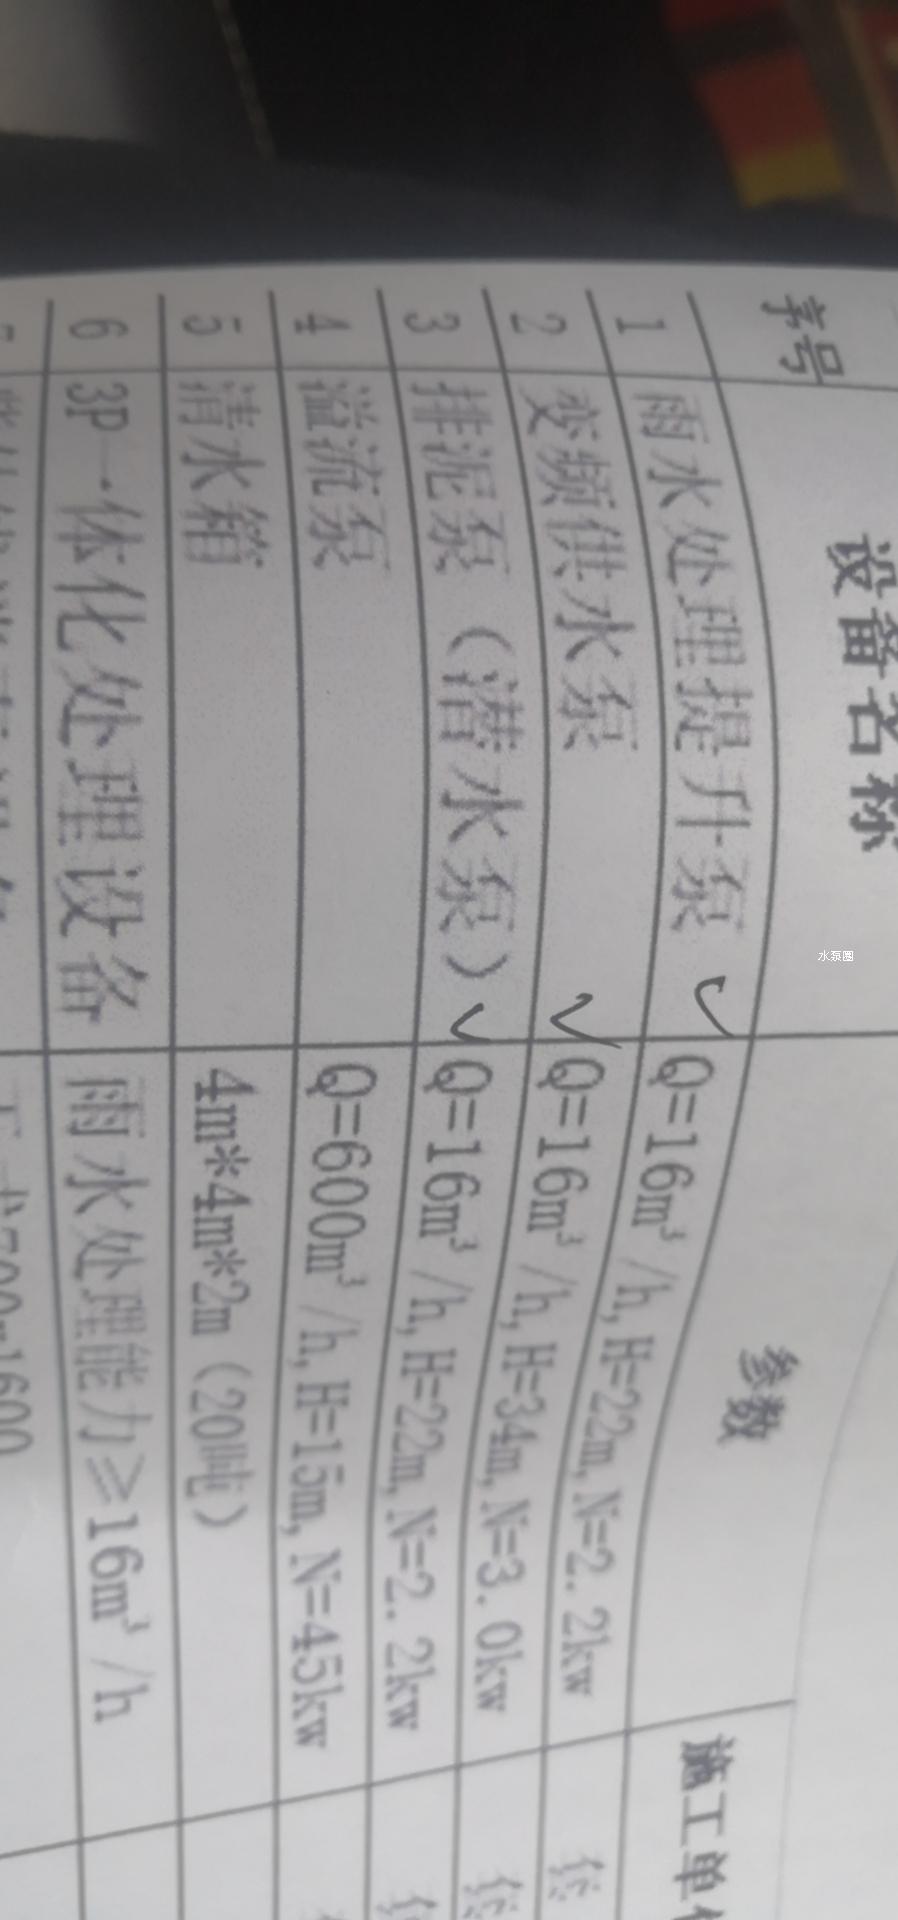 序号 设备名称 参数 施工单
1 雨水处理提升泵 Q=16m³/h, H=22m, N=2.2kw
2 变频供水泵 Q=16m³/h, H=34m, N=3.0kw
3 排泥泵（潜水泵） Q=16m³/h, H=22m, N=2.2kw
4 溢流泵 Q=600m³/h, H=15m, N=45kw
5 清水箱 4m*4m*2m（20吨）
6 3P一体化处理设备 雨水处理能力≥16m³/h
水泵圈